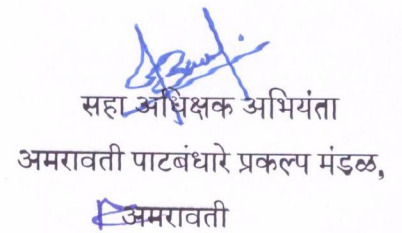 सहा अधिक्षक अभियंता
अमरावती पाटबंधारे प्रकल्प मंडळ,
अमरावती